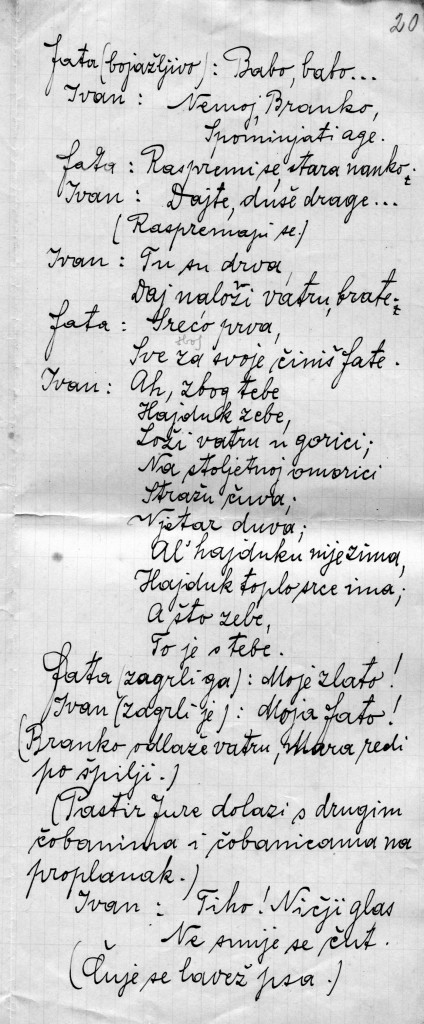 20
Fata (bojažljivo): Babo, babo...
Ivan: Nemoj, Branko,
Spominjati age.
Fata: Raspremi se, stara nanko.
Ivan: Dajte, duše drage...
(Raspremaju se.)
Ivan: Tu su drva,
Daj naloži vatru, brate.
Fata: Srećo prva,
zbog
Sve za svoje činiš Fate.
Ivan: Ah, zbog tebe
Hajduk zebe,
Loži vatru u gorici;
Na stoljetnoj omorici
Stražu čuva;
Vjetar duva;
Al' hajduku nije zima,
Hajduk toplo srce ima;
A što zebe,
To je s tebe.
Fata (zagrli ga): Moje zlato!
Ivan (zagrli je): Moja Fato!
(Branko odlaze vatru, Mara redi
po špilji.)
(Pastir Jure dolazi s drugim
čobanima i čobanicama na
proplanak.)
Ivan: Tiho! Ničji glas
Ne smije se čut.
(Čuje se lavež psa.)